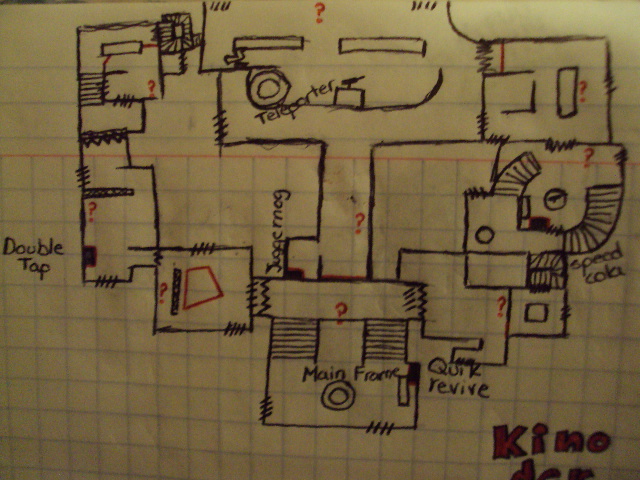 ?
Teleporter
?
?
?
?
Double
Tap
Juggernog
?
speed
cola
?
?
?
Main Frame
Quik
revive
Kino
der